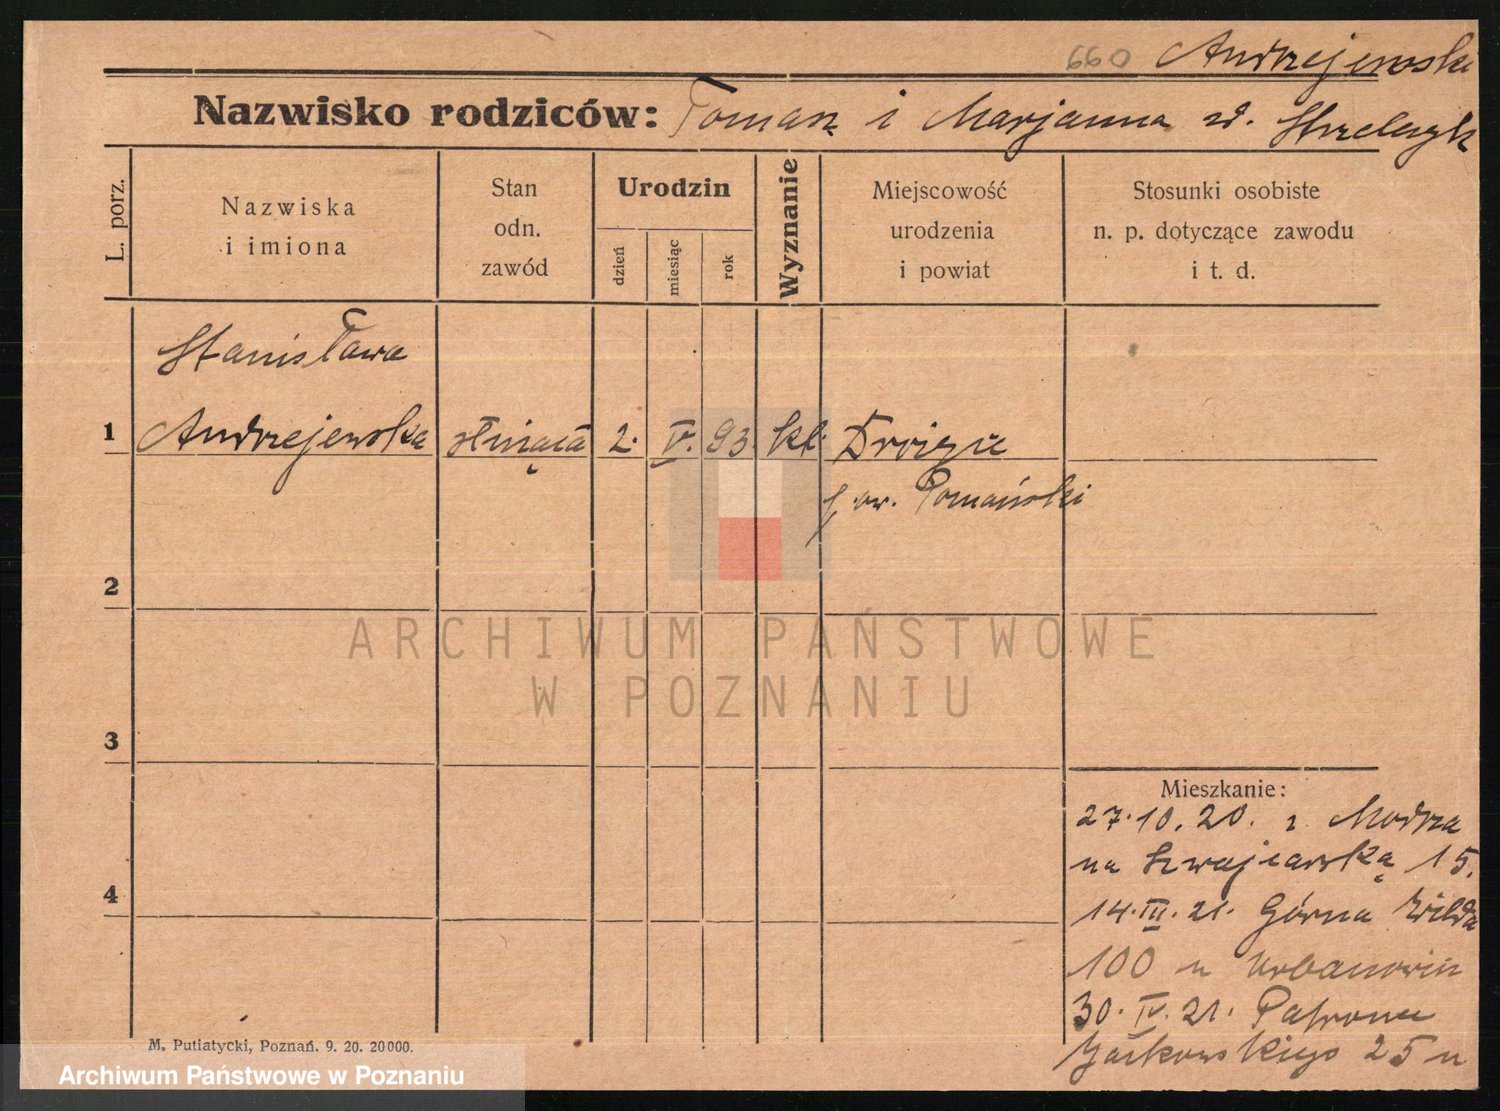 660 Andrzejewski
Nazwisko rodziców: Tomasz i Marjanna z d. Strzelczyk
L. porz.
Nazwiska
i imiona
Stan
odn.
zawód
Urodzin
dzień
miesiąc
rok
Wyznanie
Miejscowość
urodzenia
i powiat
Stosunki osobiste
n. p. dotyczące zawodu
i t. d.
Stanisława
1 Andrzejewska służąca 2. IV. 93. kt.
pow. Poznański
2
ARCHIWUM PAŃSTWOWE
W POZNANIU
3
Mieszkanie:
27.10.20. z Modrza
na Szwajcarską 15.
4
14.III.21. Górna Wilda
100 u
30.IV.21. Patrona
Jackowskiego 25 u
M. Putiatycki, Poznań. 9. 20. 20000.
Archiwum Państwowe w Poznaniu